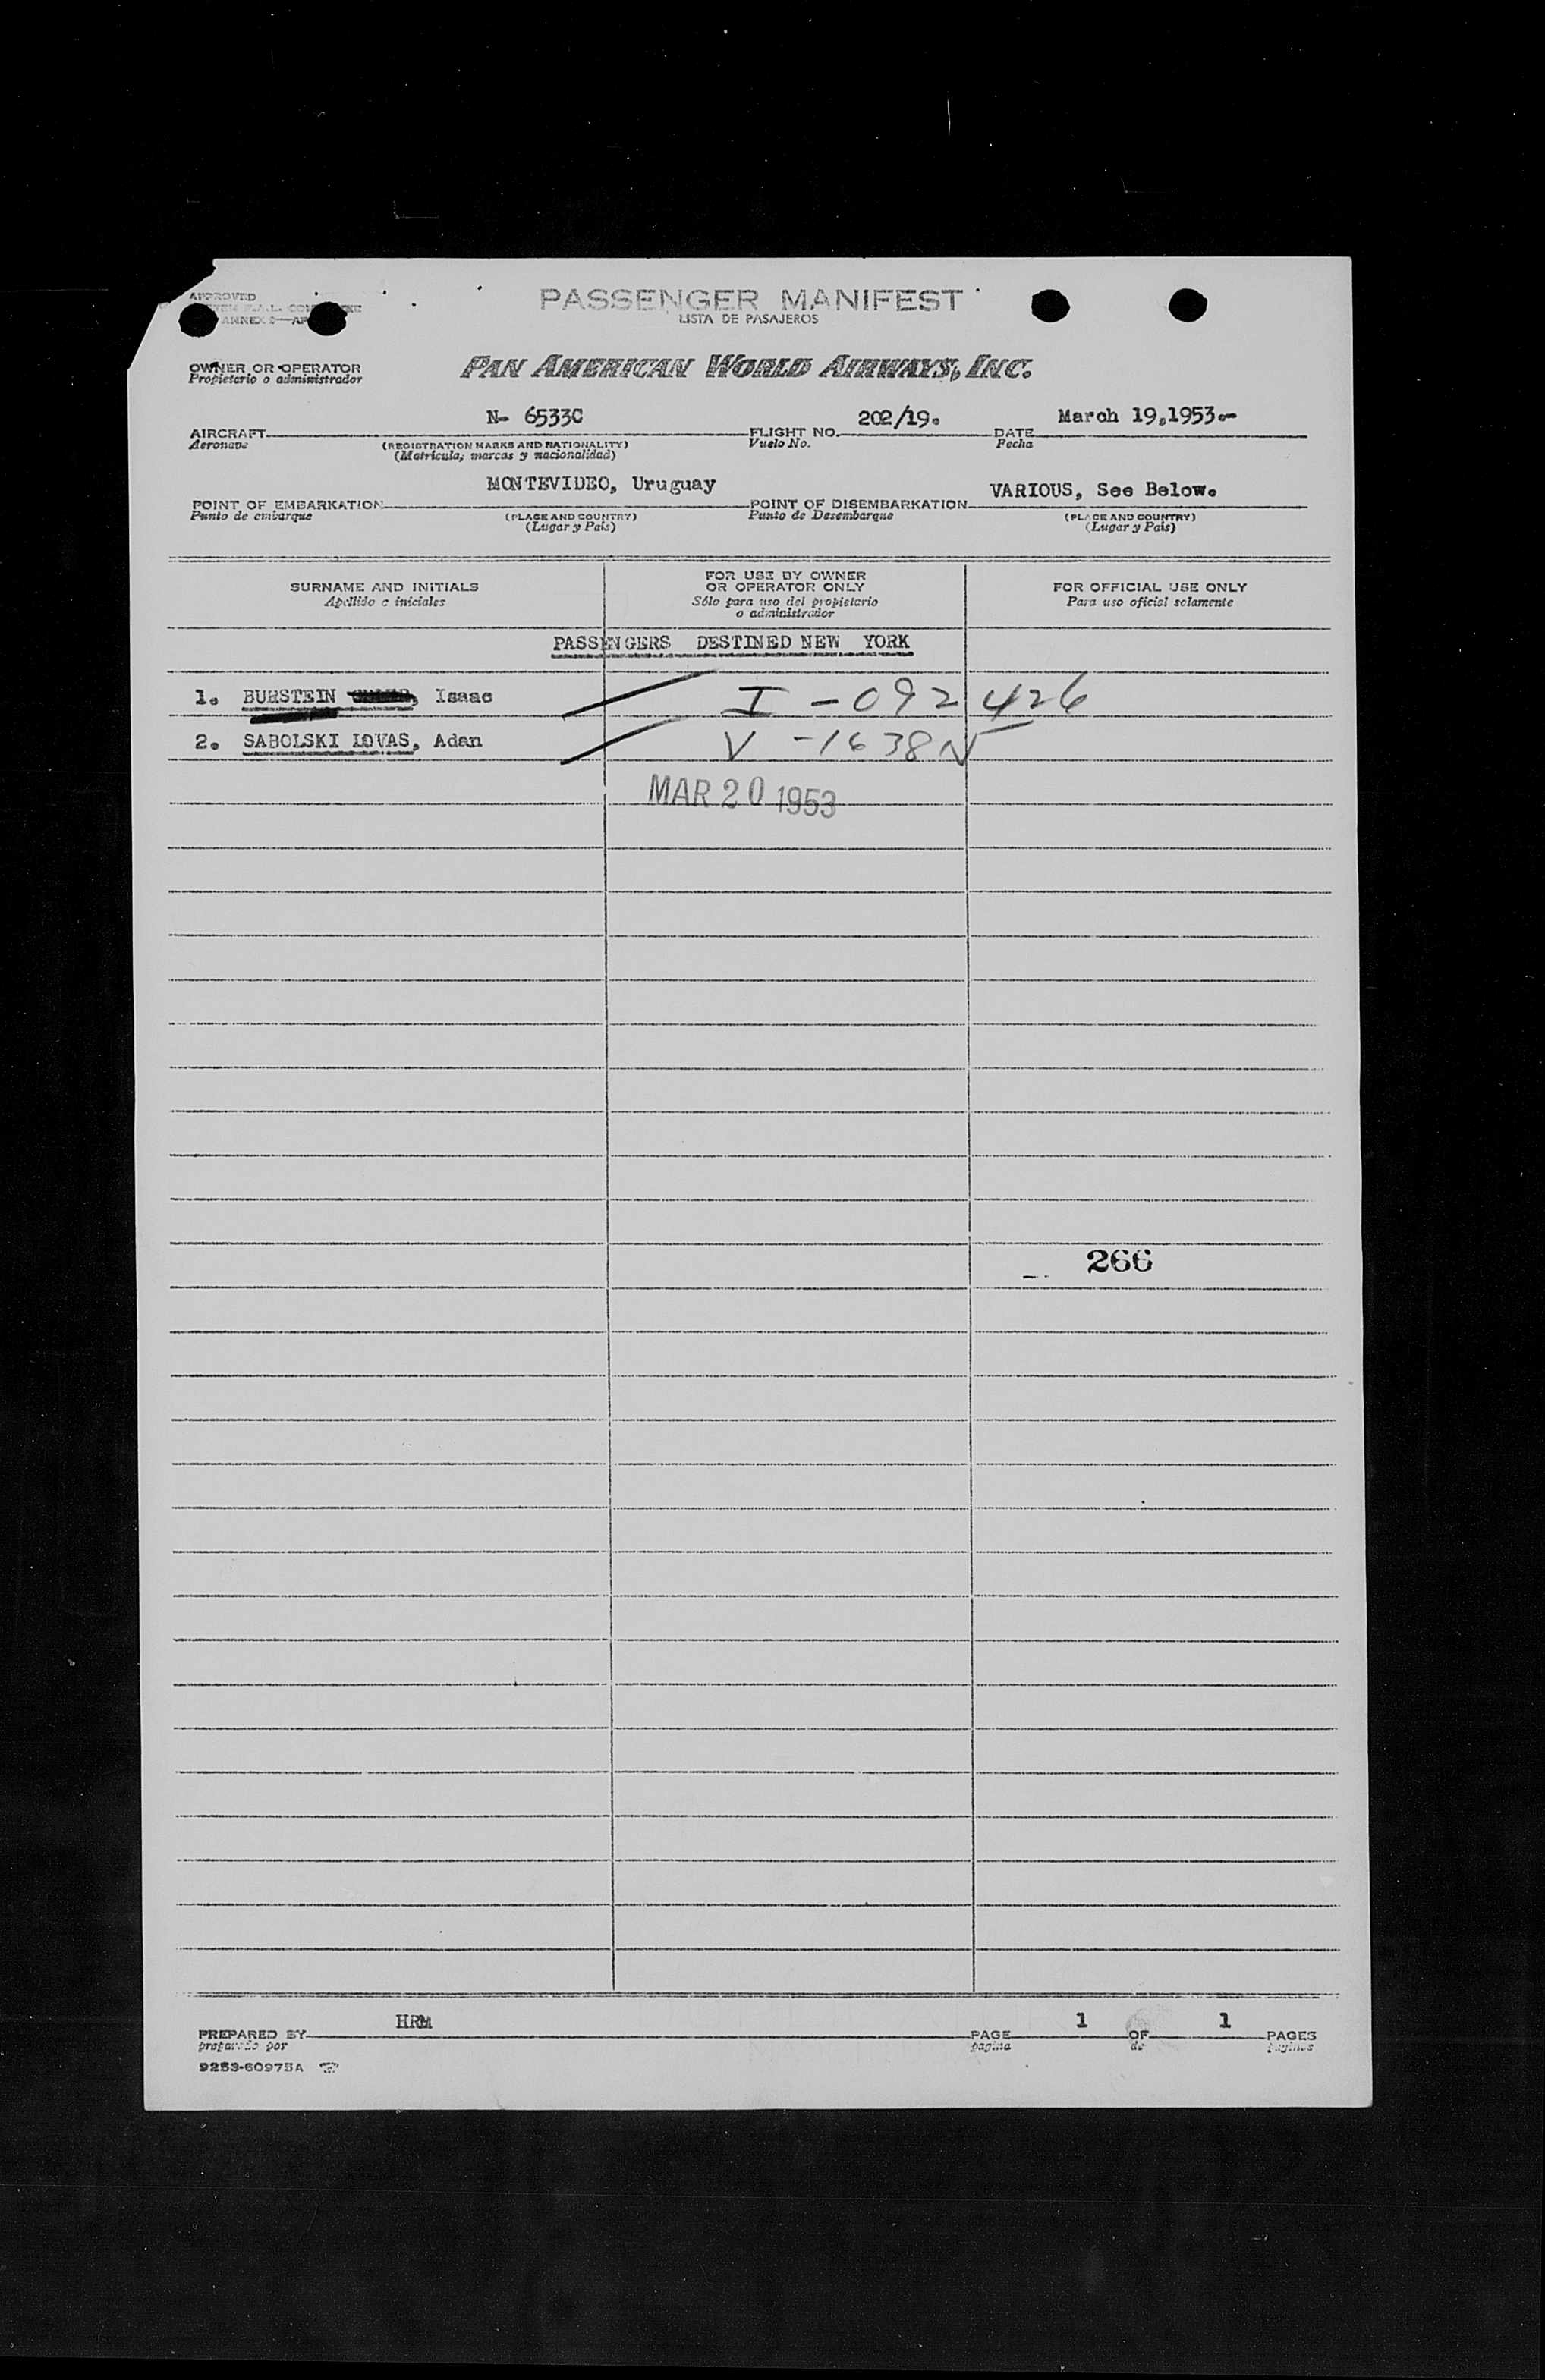 APPROVED
ANNEX 9—AP
PASSENGER MANIFEST
LISTA DE PASAJEROS
OWNER OR OPERATOR
Propietario o administrador
PAN AMERICAN WORLD AIRWAYS, INC.
N- 6533C 202/19. March 19,1953.-
AIRCRAFT FLIGHT NO. DATE
Aeronave (REGISTRATION MARKS AND NATIONALITY) Vuelo No. Fecha
(Matrícula, marcas y nacionalidad)
MONTEVIDEO, Uruguay VARIOUS, See Below.
POINT OF EMBARKATION POINT OF DISEMBARKATION
Punto de embarque (PLACE AND COUNTRY) Punto de Desembarque (PLACE AND COUNTRY)
(Lugar y País) (Lugar y País)
SURNAME AND INITIALS FOR USE BY OWNER OR OPERATOR ONLY FOR OFFICIAL USE ONLY
Apellido e iniciales Sólo para uso del propietario o administrador Para uso oficial solamente
PASSENGERS DESTINED NEW YORK
1. BURSTEIN , Isaac I - 092 426
2. SABOLSKI LOVAS, Adan V - 1638 N
MAR 20 1953
266
HRM 1 1
PREPARED BY PAGE OF PAGES
preparado por página de páginas
9253-60975A